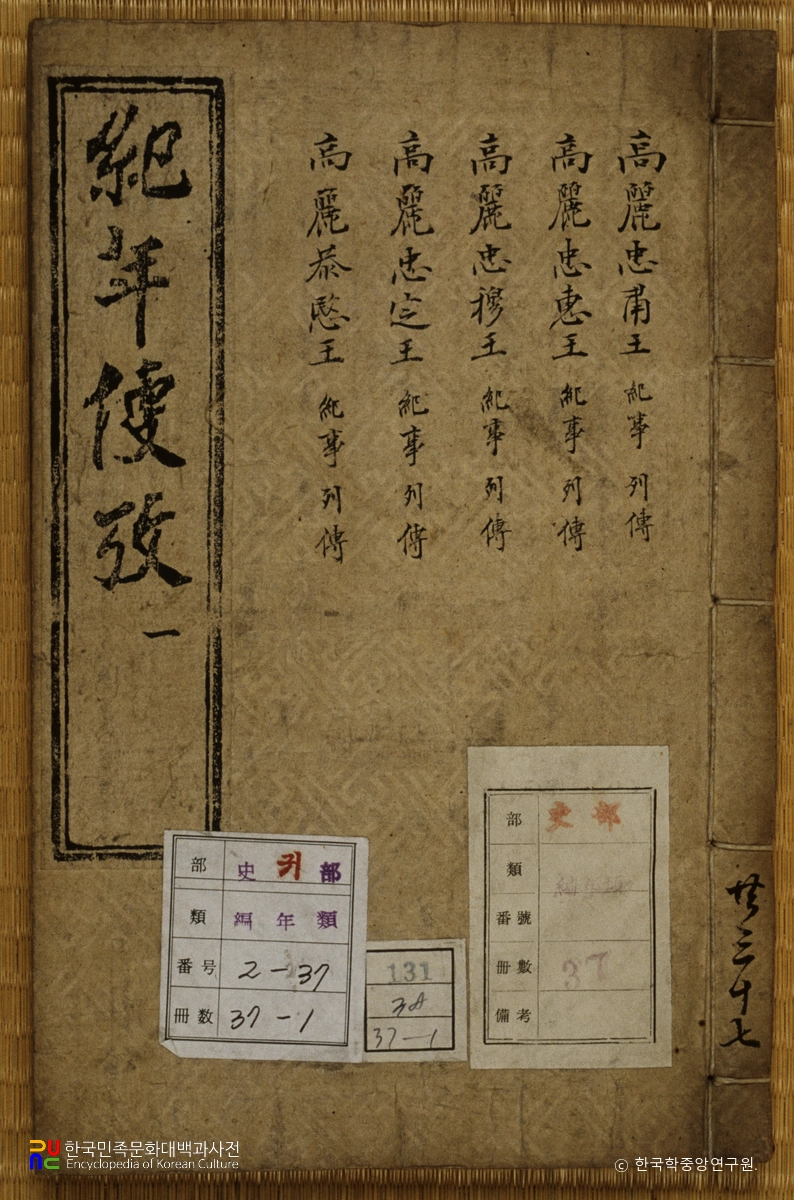 紀年便攷 一
高麗忠肅王 紀事 列傳
高麗忠惠王 紀事 列傳
高麗忠穆王 紀事 列傳
高麗忠定王 紀事 列傳
高麗恭愍王 紀事 列傳
共三十七
部 史 귀 部
類 編年類
番号 2-37
冊数 37-1
131
37-1
部 史部
類
番號
冊數 37
備考
한국민족문화대백과사전
Encyclopedia of Korean Culture
ⓒ 한국학중앙연구원.